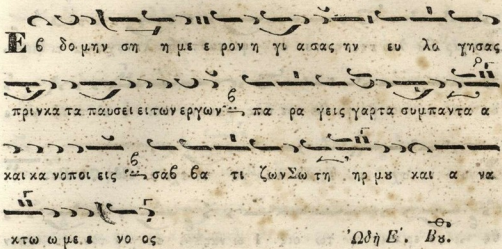 Ε β δο μην ση η με ε ρον η γι α σας ην ευ λο γησας
πριν κα τα παυσει ει των εργων πα ρα γεις γαρ τα συμπαντα α
και και νο ποι εις σαβ βα τι ζων Σω τη ηρ μου και α να
κτω ω με ε νο ος Ὠδὴ Ε΄. Βου.